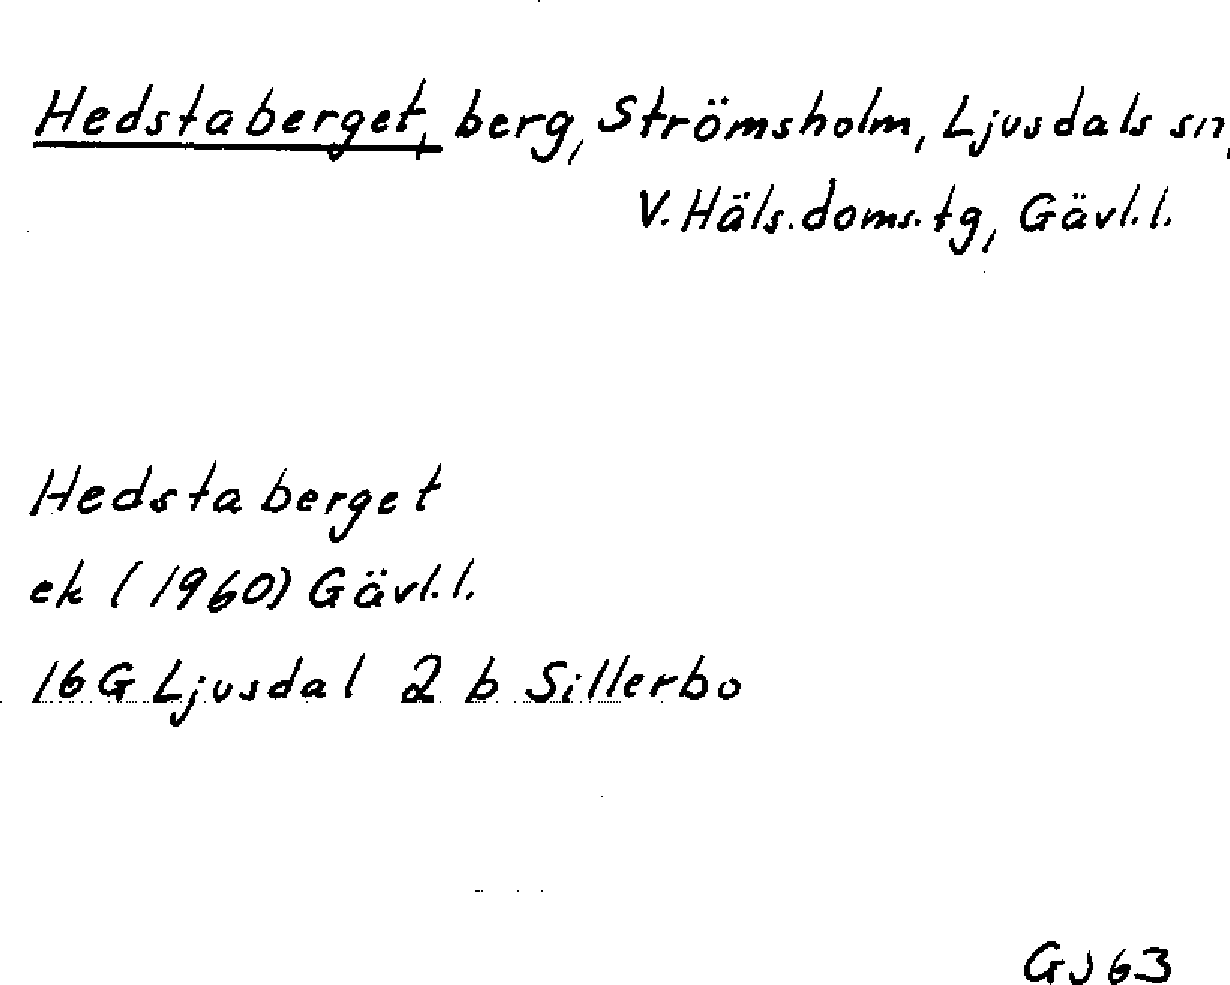 Hedstaberget, berg, Strömsholm, Ljusdals sn,
V. Häls. doms. tg, Gävl. l.
Hedstaberget
ek (1960) Gävl. l.
16 G Ljusdal 2 b Sillerbo
GJ 63